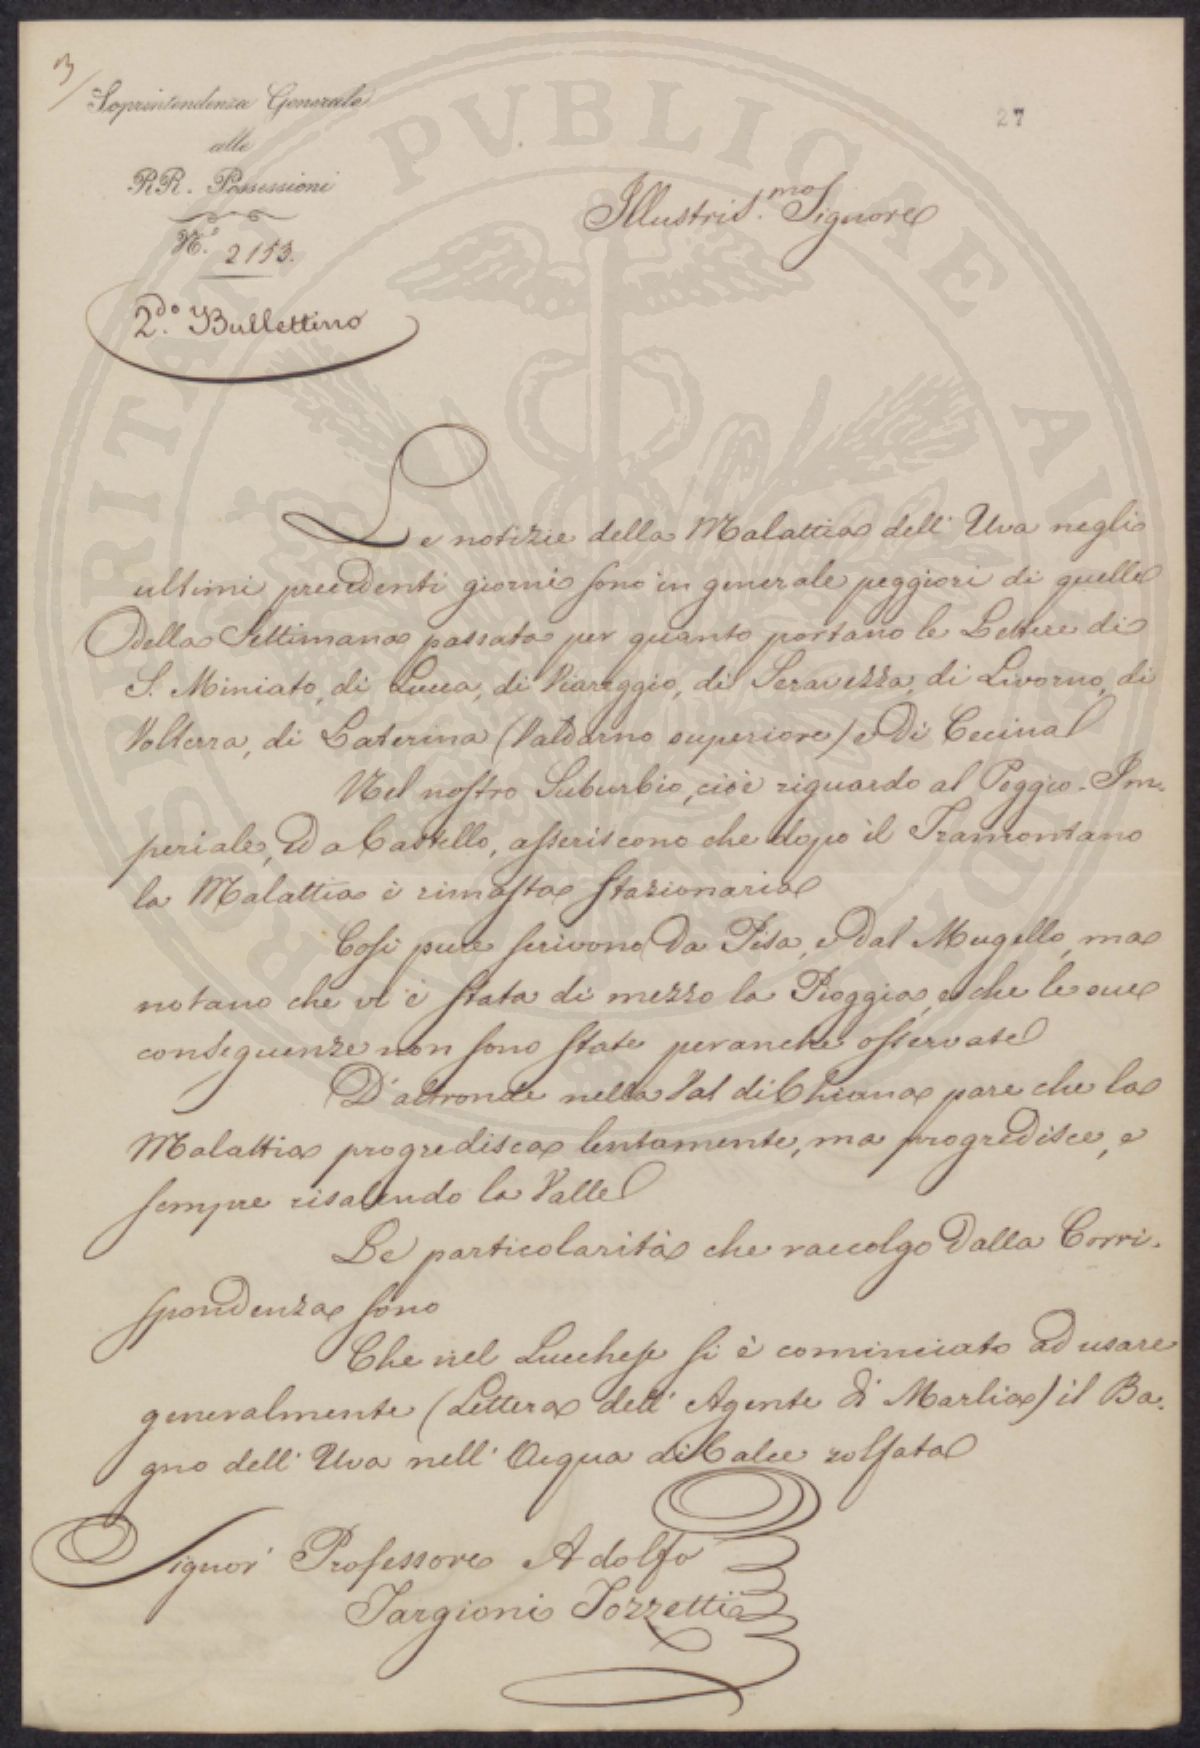 3/
27
Soprintendenza Generale
alle
RR. Possessioni
N.° 2153.
2.do Bullettino
Illustris.mo Signore
Le notizie della Malattia dell' Uva negli
ultimi precedenti giorni sono in generale peggiori di quelle
della Settimana passata per quanto portano le Lettere di
S. Miniato, di Lucca, di Viareggio, di Seravezza, di Livorno, di
Volterra, di Laterina (Valdarno superiore) e di Cecina
Nel nostro Suburbio, cioè riguardo al Poggio-Im-
periale, ed a Castello, asseriscono che dopo il Tramontano
la Malattia è rimasta stazionaria
Così pure scrivono da Pisa, e dal Mugello, ma
notano che vi è stata di mezzo la Pioggia, e che le sue
conseguenze non sono state peranche osservate
D'altronde nella Val di Chiana pare che la
Malattia progredisca lentamente, ma progredisce, e
sempre risalendo la Valle
Le particolarità che raccolgo dalla Corri-
spondenza sono
Che nel Lucchese si è cominciato ad usare
generalmente (Lettera dell' Agente di Marlia) il Ba-
gno dell' Uva nell' Acqua di Calce solfata
Signor Professore Adolfo
Targioni Tozzetti